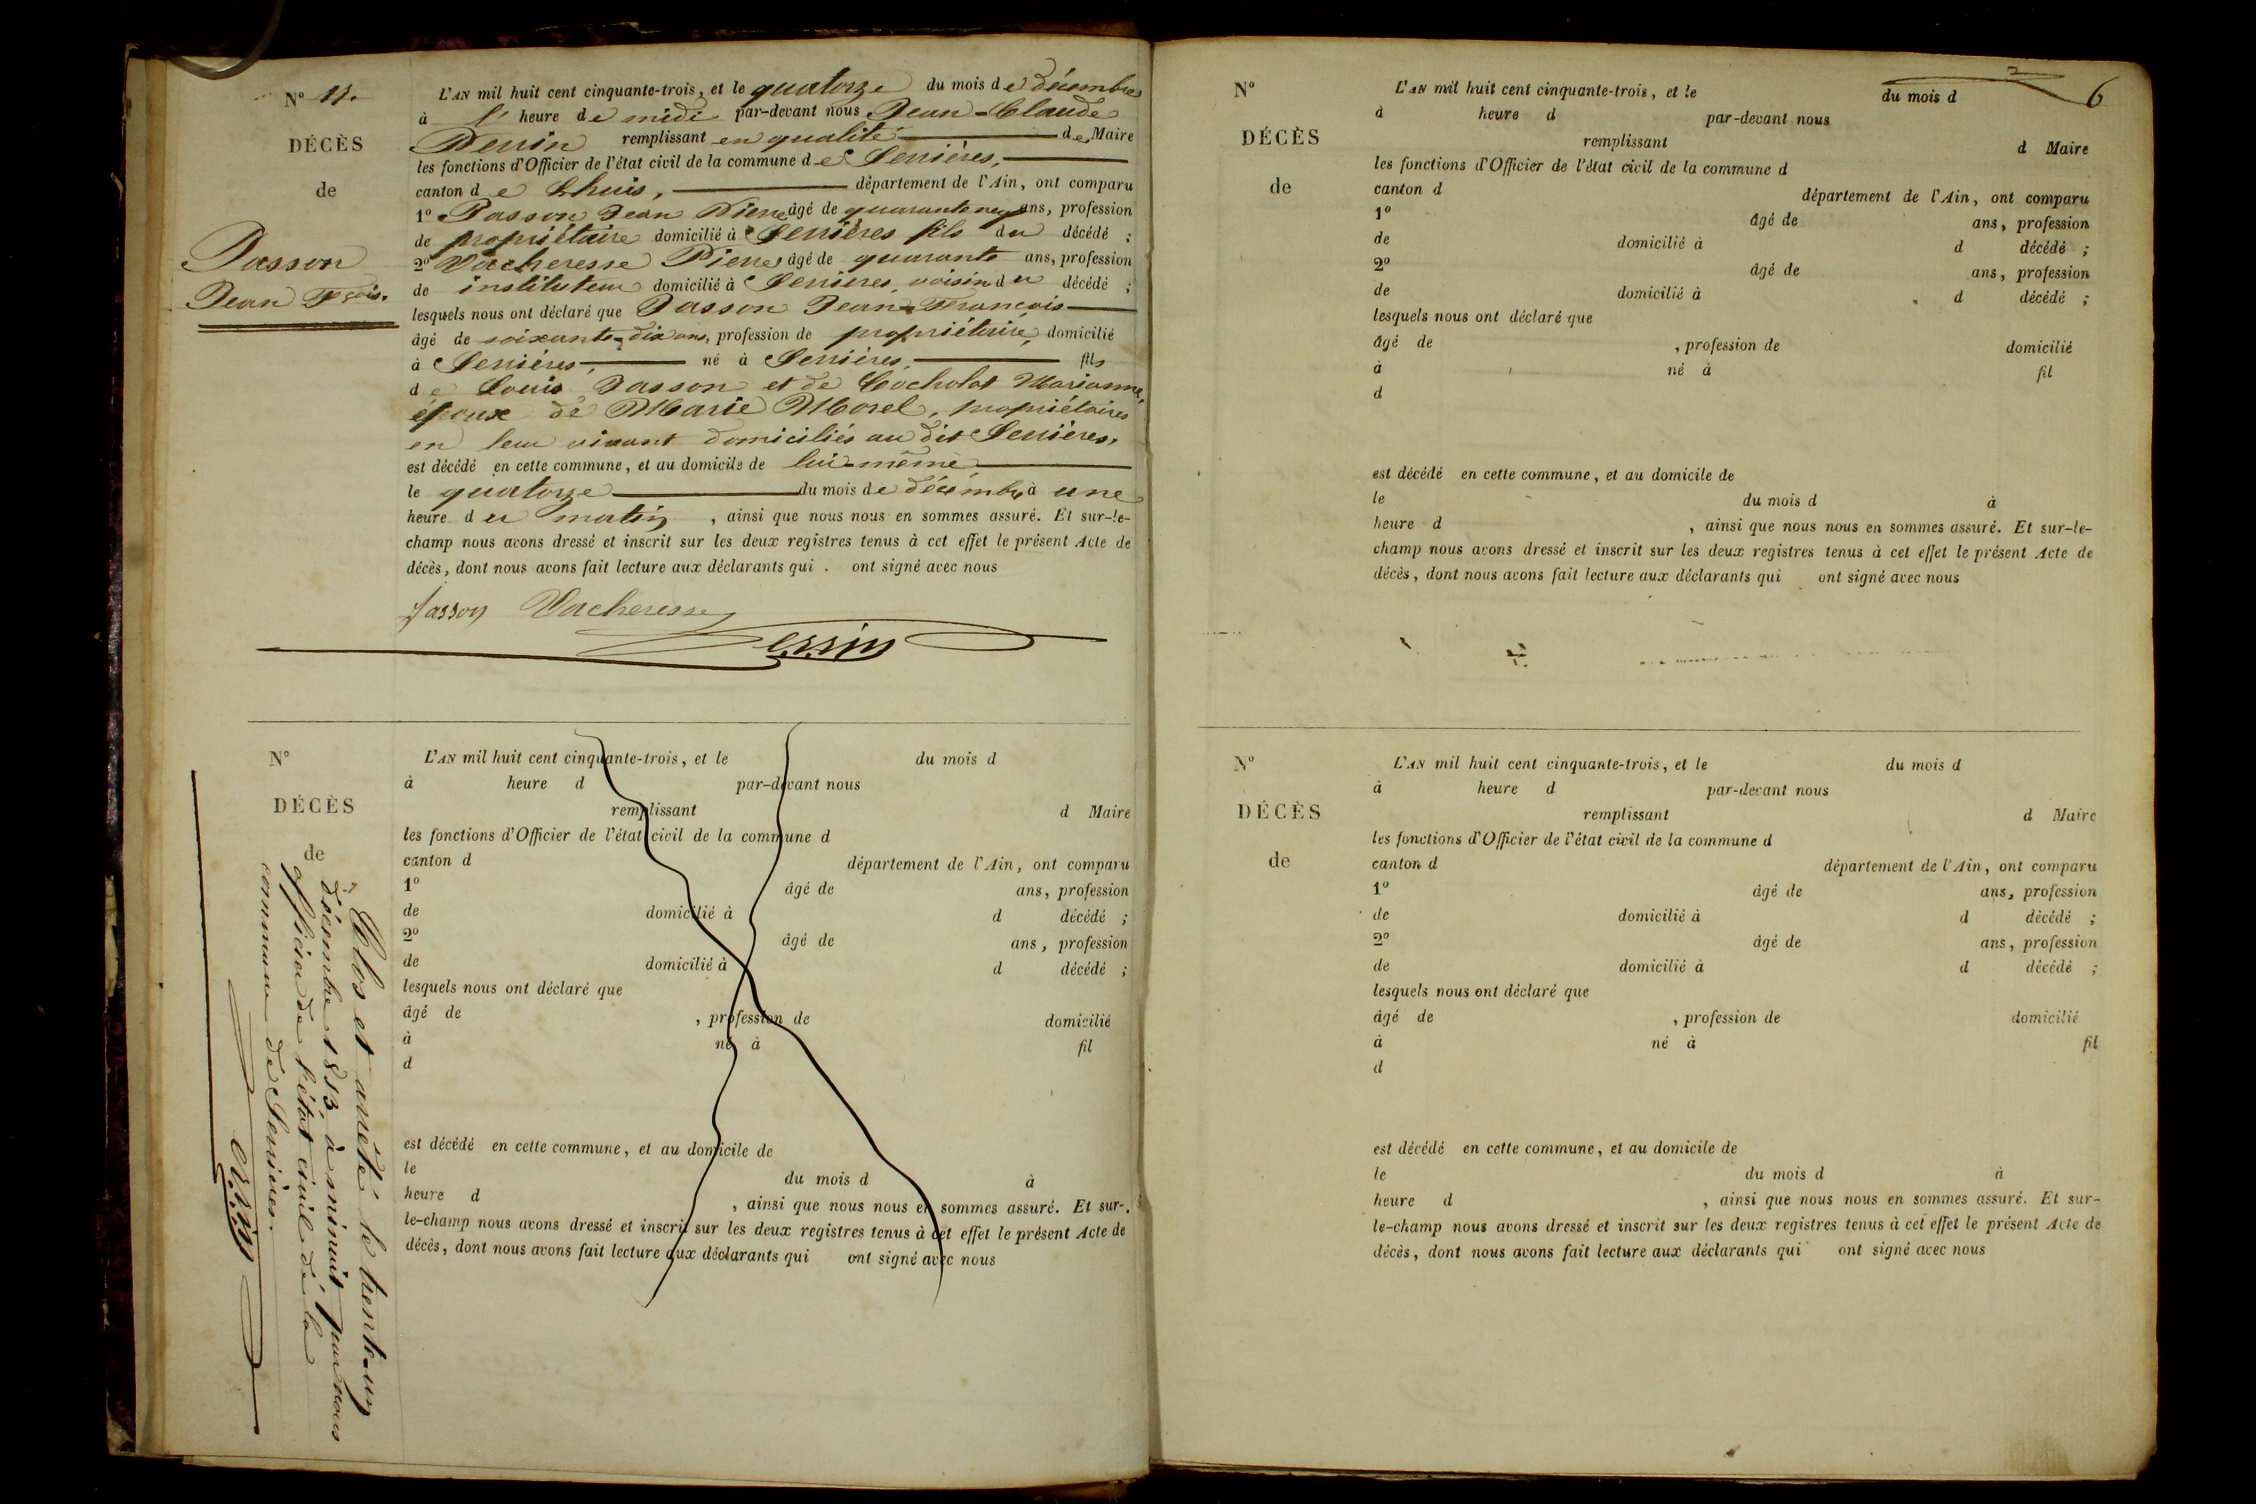 N° 11.
DÉCÈS
de
Jasson
Jean Fçois.
L'AN mil huit cent cinquante-trois, et le quatorze du mois de décembre
à l' heure de midi par-devant nous Jean-Claude
Perrin remplissant en qualité de Maire
les fonctions d'Officier de l'état civil de la commune de Serrières,
canton de Lhuis, département de l'Ain, ont comparu
1° Jasson Jean Pierre âgé de quarante neuf ans, profession
de propriétaire domicilié à Serrières fils du décédé ;
2° Vacheresse Pierre âgé de quarante ans, profession
de instituteur domicilié à Serrières, voisin du décédé ;
lesquels nous ont déclaré que Jasson Jean-François
âgé de soixante-dix ans, profession de propriétaire, domicilié
à Serrières, né à Serrières, fils
de Louis Jasson et de Cocholat Marianne,
époux de Marie Morel, propriétaires
en leur vivant domiciliés au dit Serrières,
est décédé en cette commune, et au domicile de lui-même
le quatorze du mois de décembre à une
heure du matin , ainsi que nous nous en sommes assuré. Et sur-le-
champ nous avons dressé et inscrit sur les deux registres tenus à cet effet le présent Acte de
décès, dont nous avons fait lecture aux déclarants qui . ont signé avec nous
Jasson Vacheresse
Perrin
N°
DÉCÈS
de
L'AN mil huit cent cinquante-trois, et le du mois d
à heure d par-devant nous
remplissant d Maire
les fonctions d'Officier de l'état civil de la commune d
canton d département de l'Ain, ont comparu
1° âgé de ans, profession
de domicilié à d décédé ;
2° âgé de ans, profession
de domicilié à d décédé ;
lesquels nous ont déclaré que
âgé de , profession de domicilié
à né à fil
d
est décédé en cette commune, et au domicile de
le du mois d à
heure d , ainsi que nous nous en sommes assuré. Et sur-
le-champ nous avons dressé et inscrit sur les deux registres tenus à cet effet le présent Acte de
décès, dont nous avons fait lecture aux déclarants qui ont signé avec nous
Clos et arrêté le trente-un
décembre 1853, à minuit, par nous
officier de l'état civil de la
commune de Serrières.
Perrin
6
N°
DÉCÈS
de
L'AN mil huit cent cinquante-trois, et le du mois d
à heure d par-devant nous
remplissant d Maire
les fonctions d'Officier de l'état civil de la commune d
canton d département de l'Ain, ont comparu
1° âgé de ans, profession
de domicilié à d décédé ;
2° âgé de ans, profession
de domicilié à d décédé ;
lesquels nous ont déclaré que
âgé de , profession de domicilié
à né à fil
d
est décédé en cette commune, et au domicile de
le du mois d à
heure d , ainsi que nous nous en sommes assuré. Et sur-le-
champ nous avons dressé et inscrit sur les deux registres tenus à cet effet le présent Acte de
décès, dont nous avons fait lecture aux déclarants qui ont signé avec nous
N°
DÉCÈS
de
L'AN mil huit cent cinquante-trois, et le du mois d
à heure d par-devant nous
remplissant d Maire
les fonctions d'Officier de l'état civil de la commune d
canton d département de l'Ain, ont comparu
1° âgé de ans, profession
de domicilié à d décédé ;
2° âgé de ans, profession
de domicilié à d décédé ;
lesquels nous ont déclaré que
âgé de , profession de domicilié
à né à fil
d
est décédé en cette commune, et au domicile de
le du mois d à
heure d , ainsi que nous nous en sommes assuré. Et sur-
le-champ nous avons dressé et inscrit sur les deux registres tenus à cet effet le présent Acte de
décès, dont nous avons fait lecture aux déclarants qui ont signé avec nous